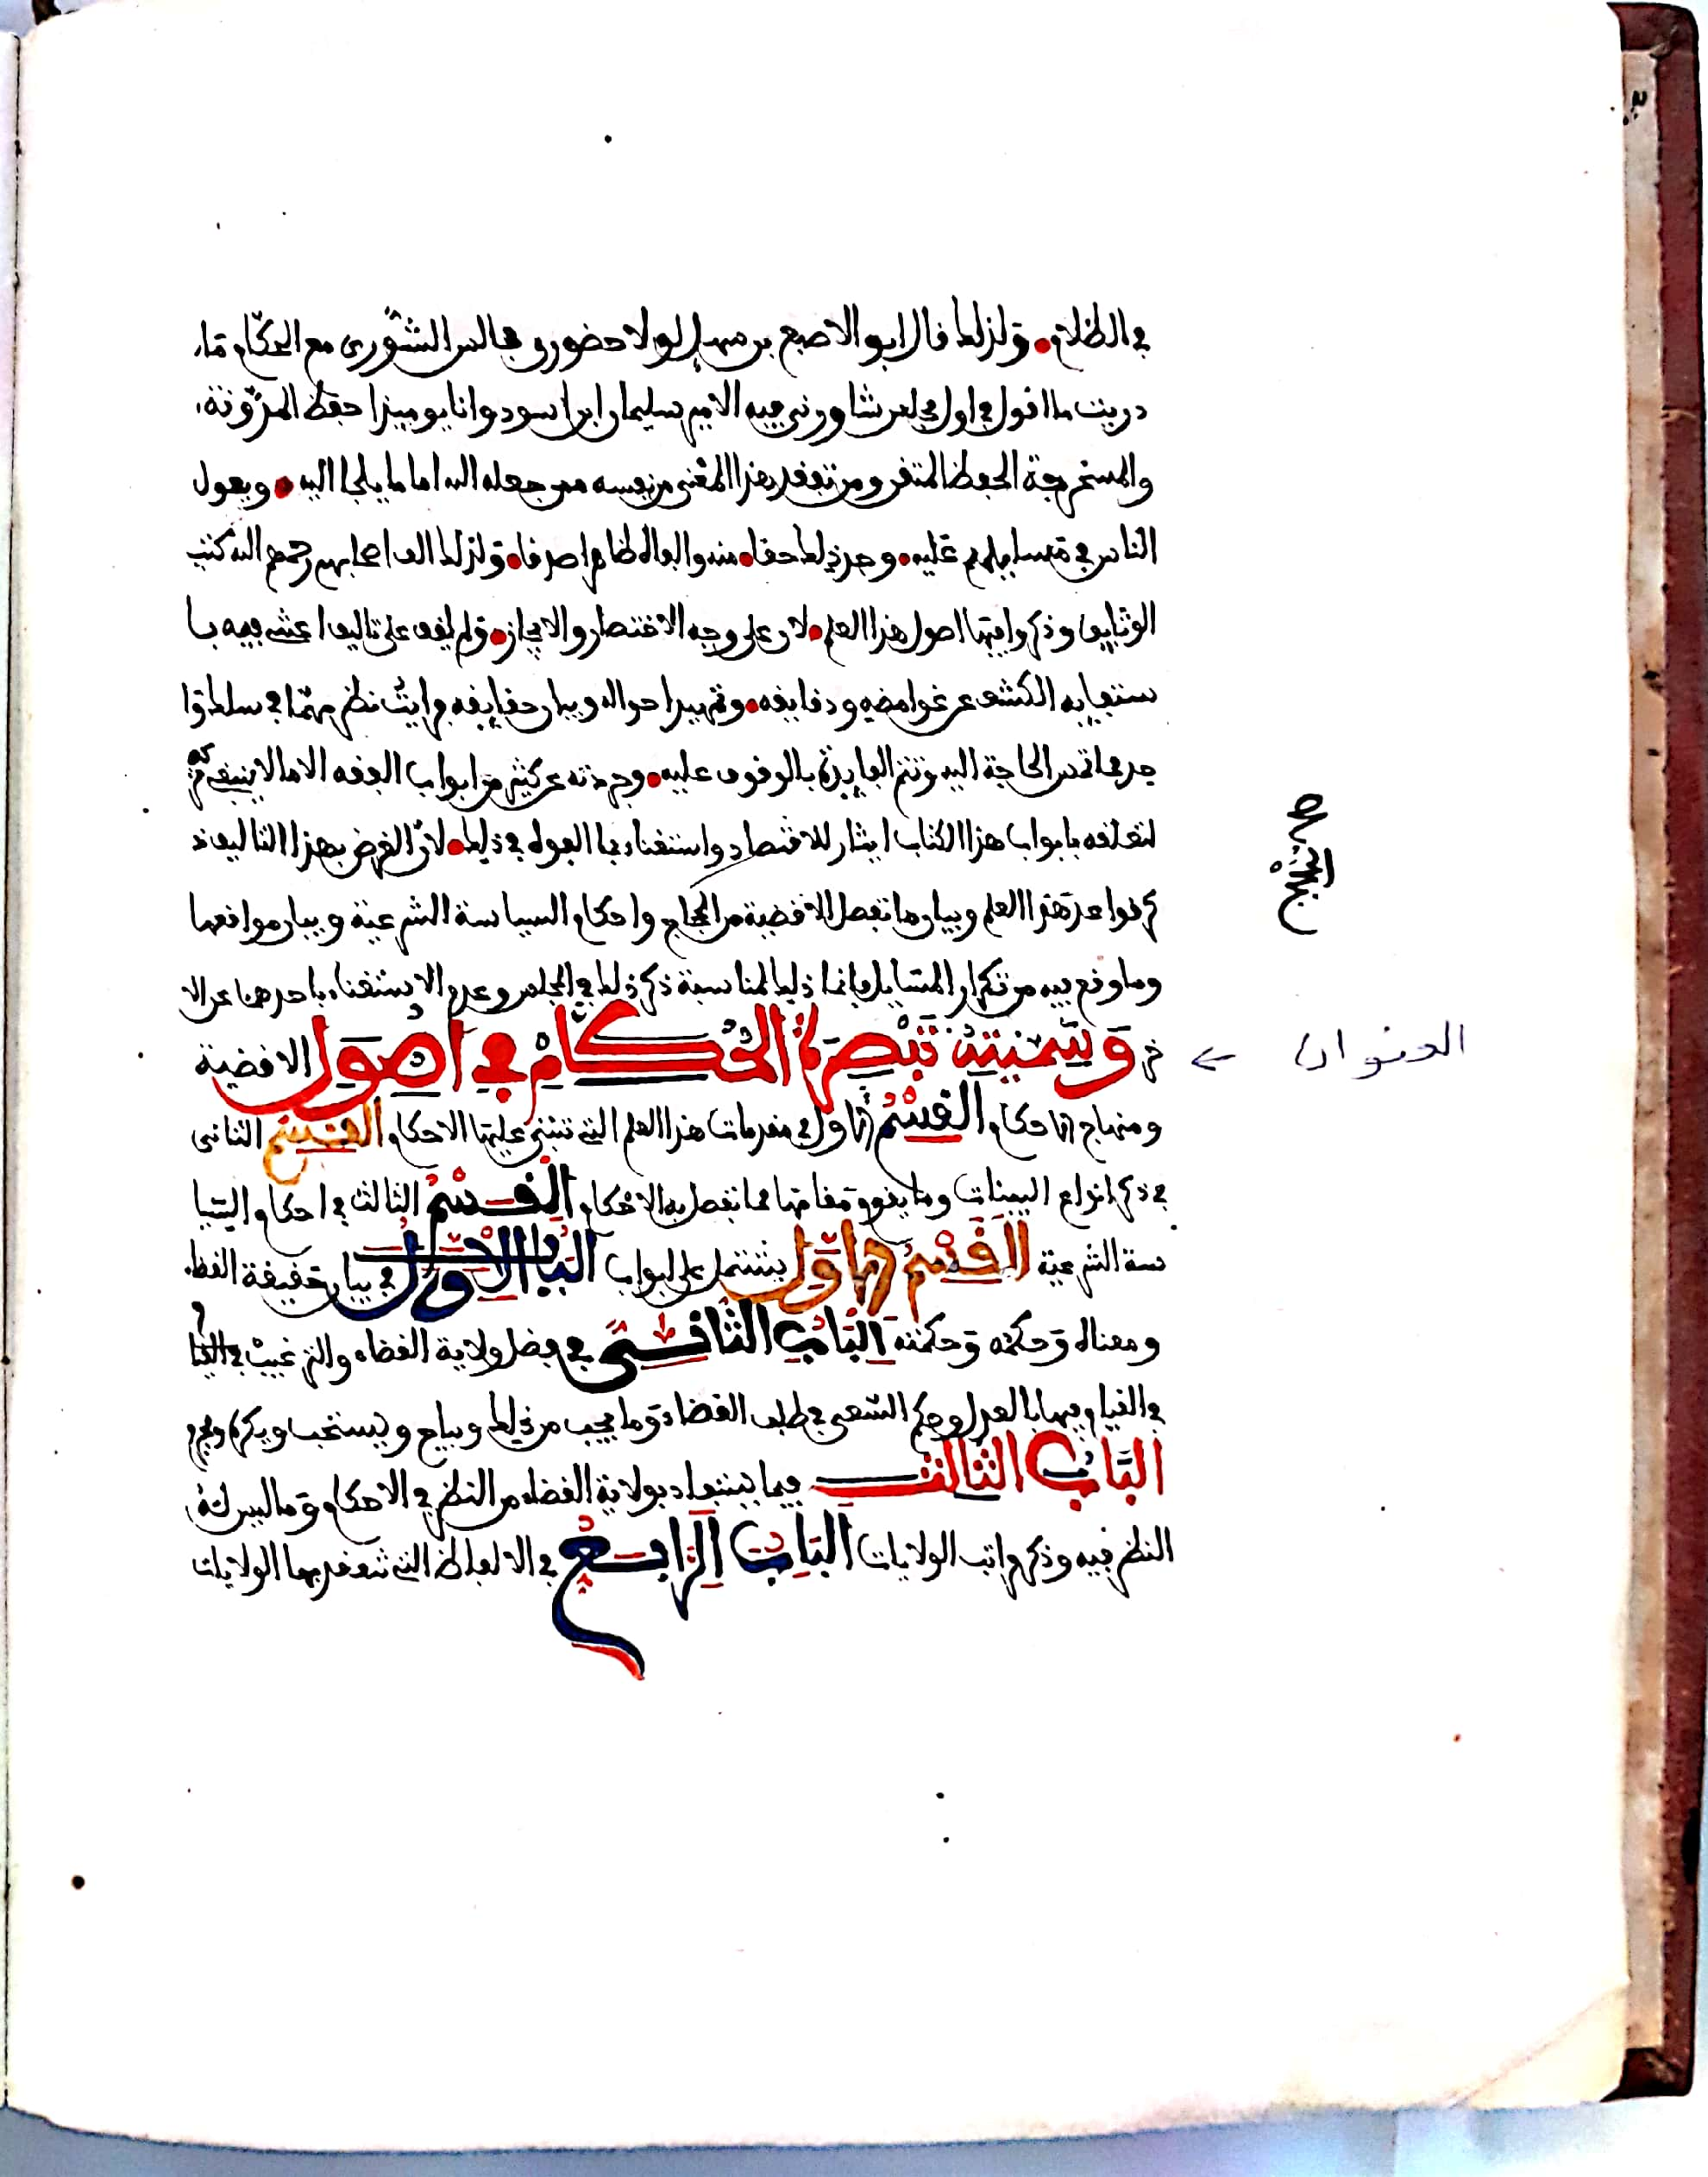 في الظلام ولذلك قال ابو الاصبغ بن سهل لولا حضوري مجالس الشورى مع الحكام ما
دريت ما اقول في اول مجلس شاورني فيه الامير سليمان ابن اسود وانا يوميذ احفظ المدونة
والمستخرجة الحفظ المتقن ومن تفقد هذا المعنى من نفسه ممن جعله الله اماما يلجا اليه ويعول
الناس في مسايلهم عليه وجد ذلك حقا والفاه ظاهرا صدقا ولذلك الف اصحابهم رحمهم الله كتب
الوثايق وذكروا فيها اصول هذا العلم لاكن على وجه الاختصار والايجاز ولم يقف على تاليف اعتنى فيه با
ستيعابه الكشف عن غوامضه ودقايقه وتمهيد احواله وبيان حقايقه فرايت نظم مهما في سلك وا
حد مما تمس الحاجة اليه وتتم الفايدة بالوقوف عليه وجردته عن كثير من ابواب الفقه الا ما لا ينبغي تركه
لتعلقه بابواب هذا الكتاب ايثار للاقتصاد واستغناء بما الفوه في ذلك لان الغرض بهذا التاليف ذ
كر قواعد هذا العلم وبيان ما تفصل به الاقضية من الحجاج واحكام السياسة الشرعية وبيان مواقعها
وما وقع فيه من تكرار المسايل فانما ذلك لمناسبة ذكر ذلك في المجلس وعدم الاستغناء باحدهما عن الا
خر وسميته تبصرة الحكام في اصول الاقضية
العنوان
ومنهاج الاحكام القسم الاول في مقدمات هذا العلم التي تنبني عليها الاحكام القسم الثاني
في ذكر انواع البينات وما يقوم مقامها مما تفصل به الاحكام القسم الثالث في احكام السيا
سة الشرعية القسم الاول يشتمل على ابواب الباب الاول في بيان حقيقة القضاء
ومعناه وحكمه وحكمته الباب الثاني في فضل ولاية القضاء والترغيب في القيام
في القيام فيها بالعدل وحكم السعي في طلب القضاء وما يجب من ذلك ويباح ويستحب ويكره ويحرم
الباب الثالث فيما يستفاد بولاية القضاء من النظر في الاحكام وما ليس له
النظر فيه وذكر مراتب الولايات الباب الرابع في الالفاظ التي تنعقد بها الولايات